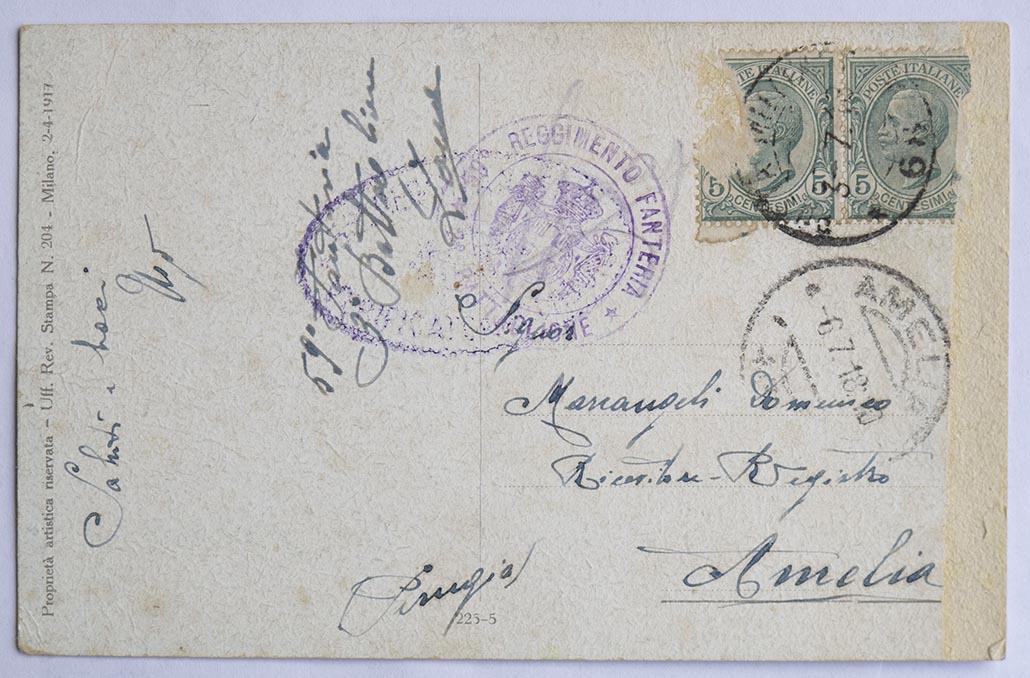 Proprietà artistica riservata - Uff. Rev. Stampa N. 204 - Milano, 2-4-1917
Saluti e baci
Ugo
59° Fanteria
3° Battaglione
REGGIMENTO FANTERIA
POSTE ITALIANE
5 CENTESIMI 5
POSTE ITALIANE
5 CENTESIMI 5
3 7
AMELIA
-6.7.18
Signor
Marcangeli Domenico
Ricevitore-Registro
Amelia
Perugia
225-5